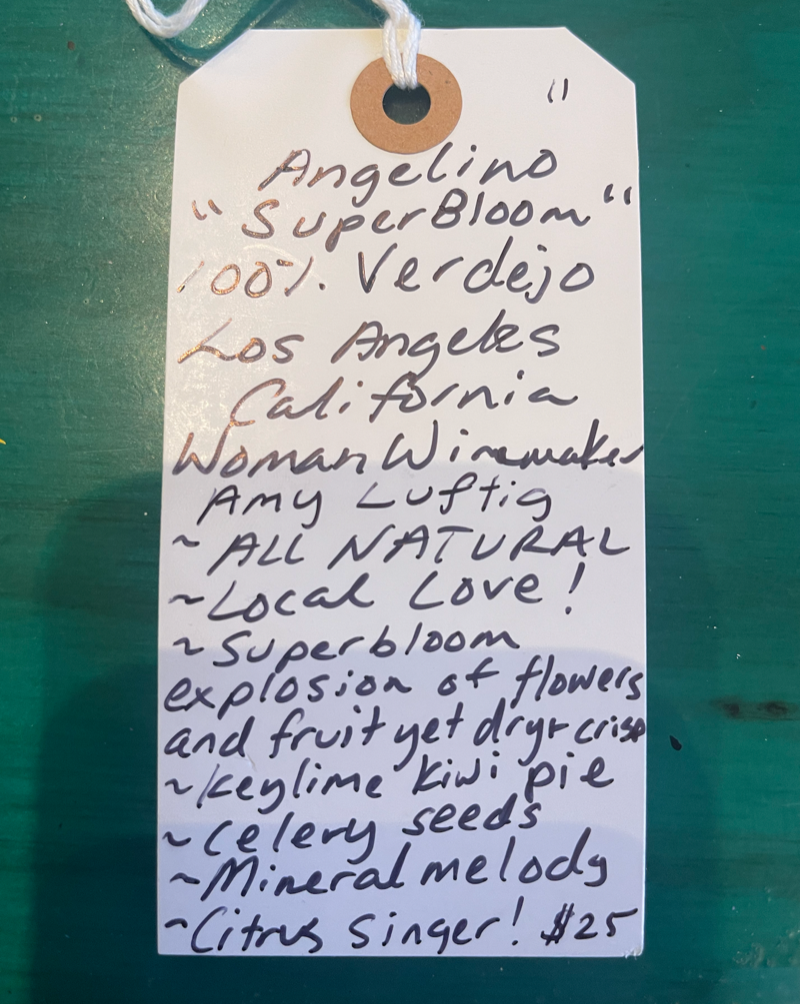 "
Angelino
"SuperBloom"
100% Verdejo
Los Angeles
California
Woman Winemaker
Amy Luftig
~ ALL NATURAL
~Local Love!
~Superbloom
explosion of flowers
and fruit yet dry + crisp
~Keylime kiwi pie
~Celery seeds
~Mineral melody
~Citrus singer! $25